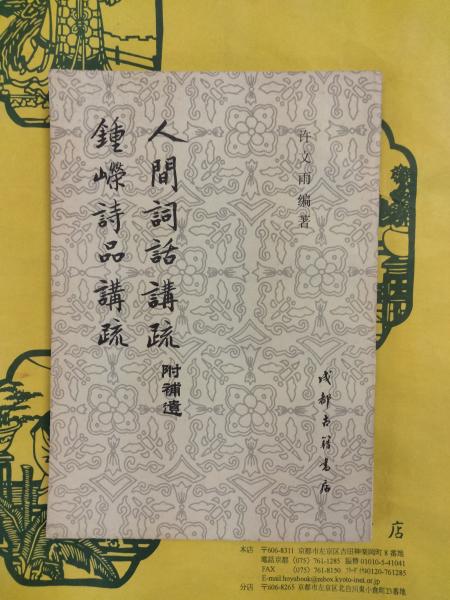 许文雨编著
人間詞話講疏 附補遺
鍾嶸詩品講疏
成都古籍书店
店
本店 〒606-8311 京都市左京区吉田神楽岡町8番地
電話京都 (075) 761-1285 振替 01010-5-41041
FAX (075) 761-8150 フリーダイヤル0120-761285
E-mail.hoyubook@mbox.kyoto-inet.or.jp
分店 〒606-8265 京都市左京区北白川東小倉町23番地